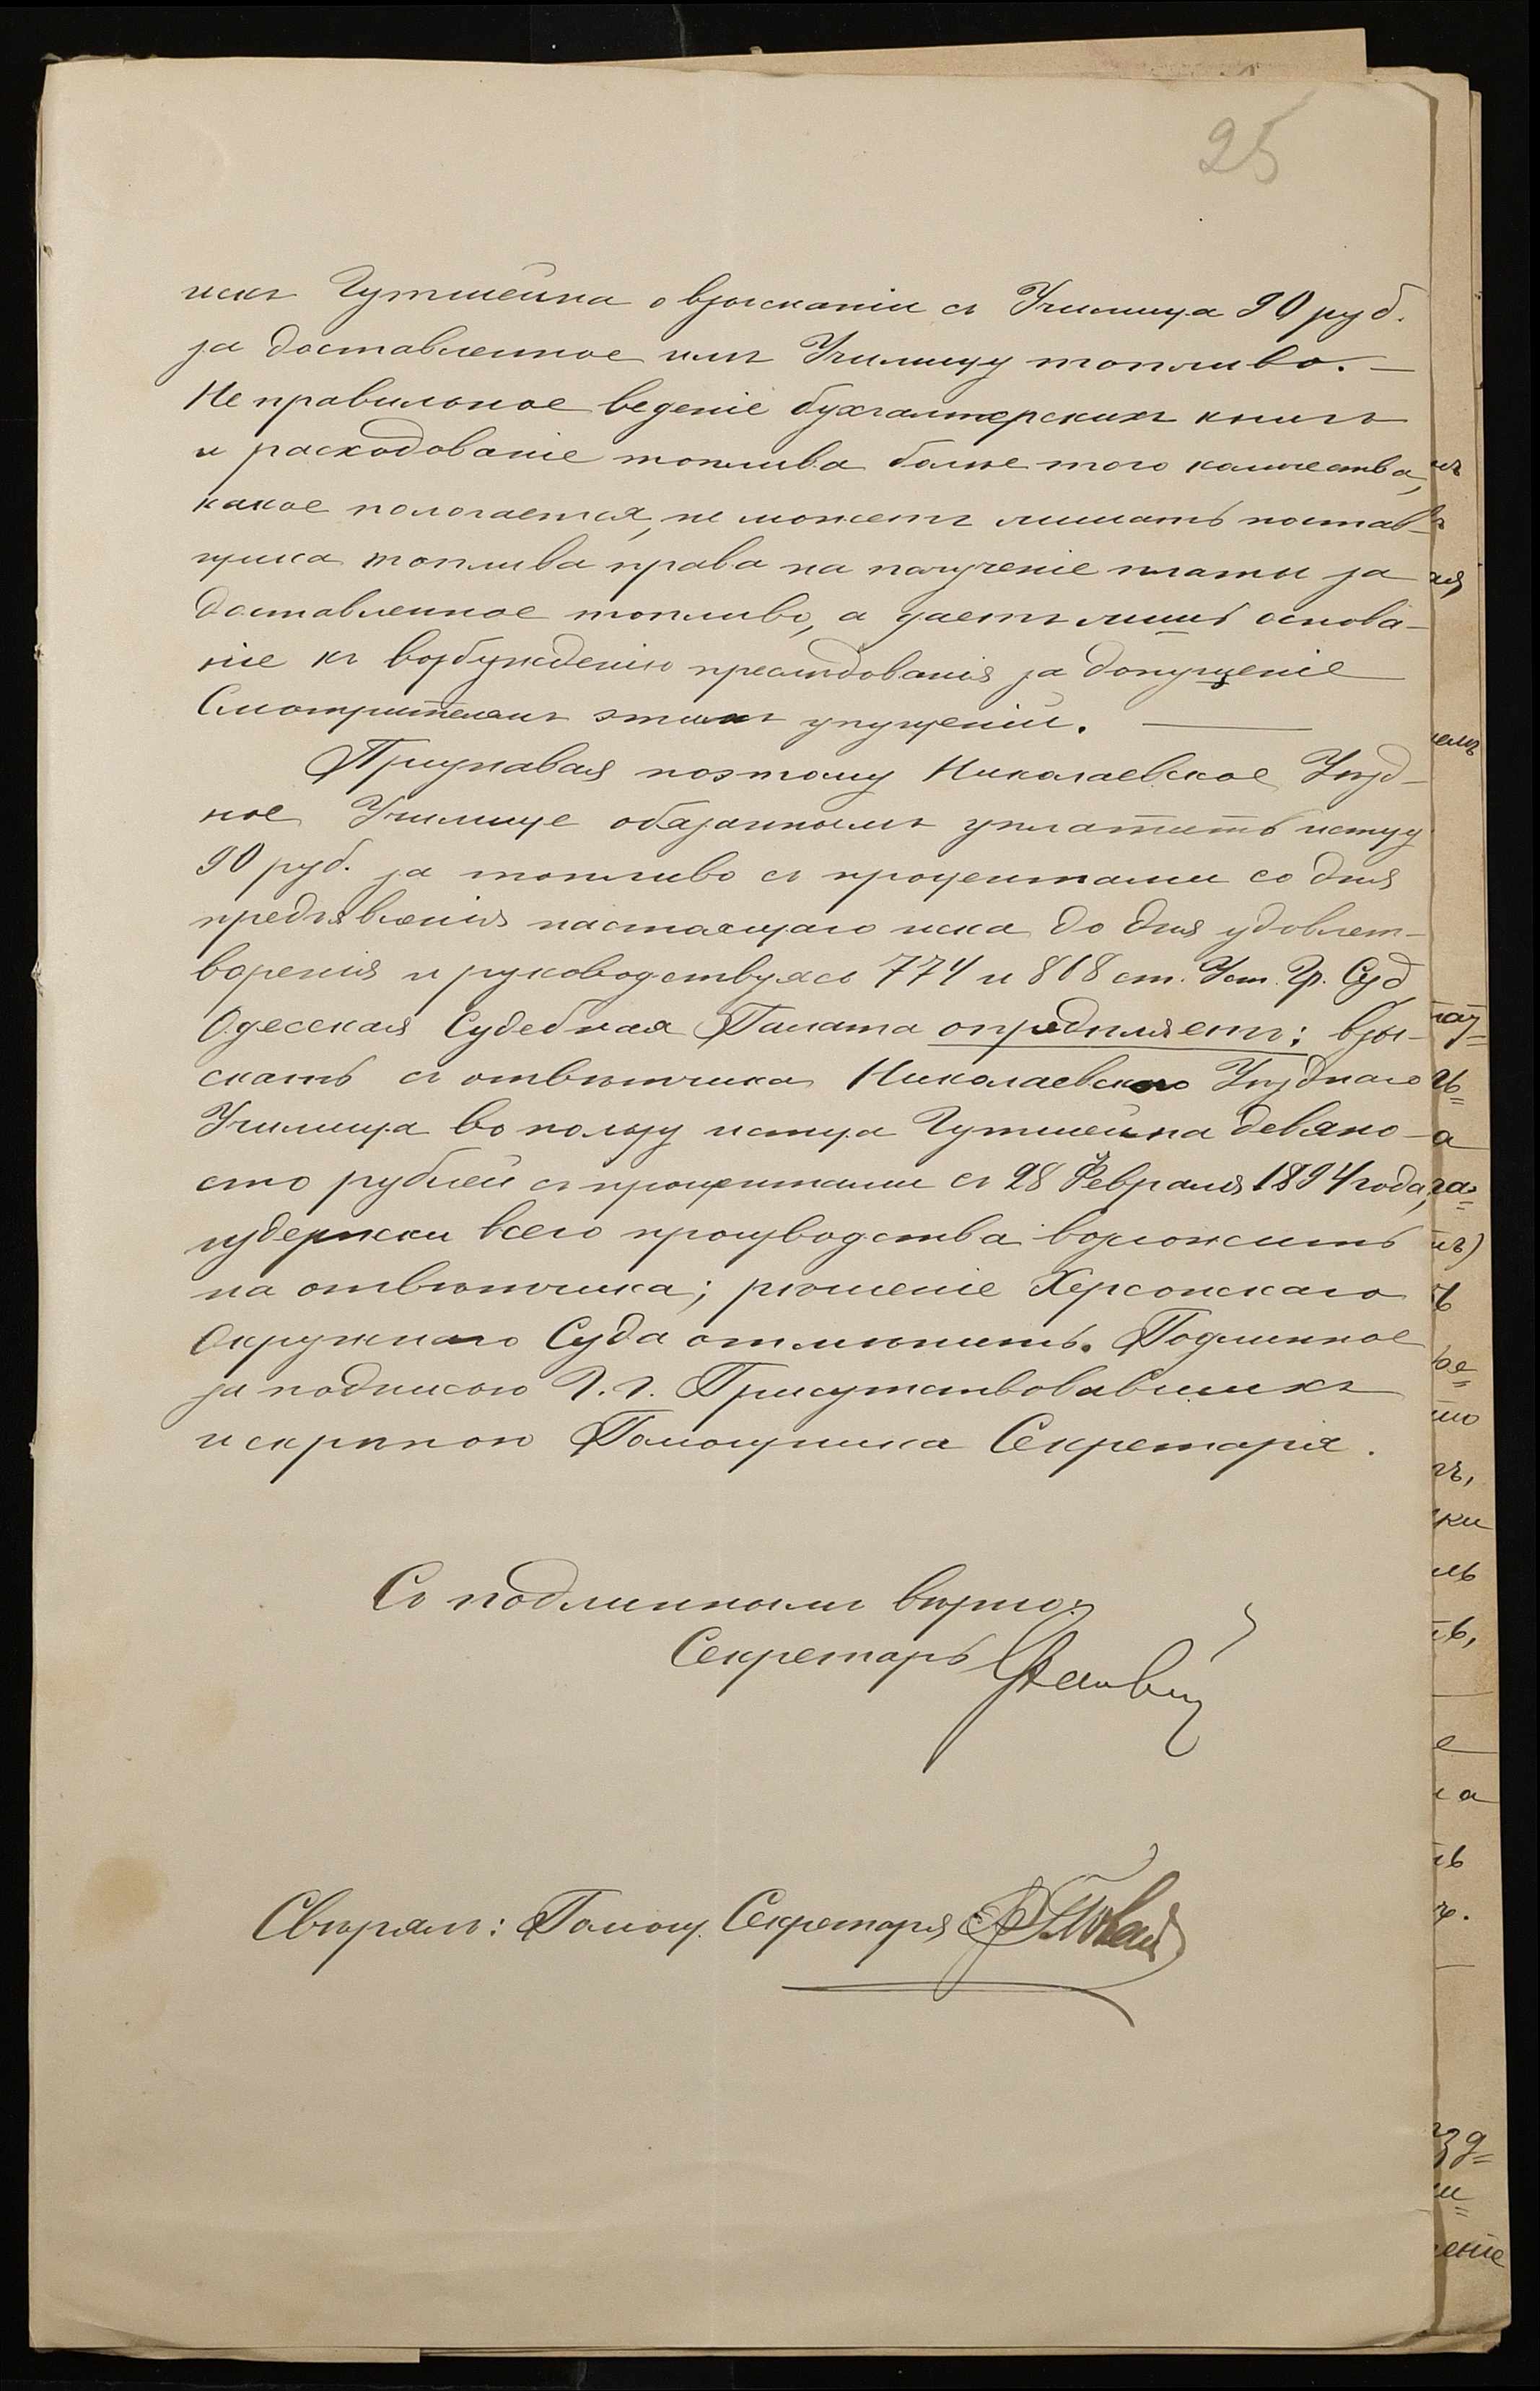 25
искъ Гутшейна о взысканіи съ Училища 90 руб.
за доставленное имъ Училищу топливо. —
Неправильное веденіе бухгалтерскихъ книгъ
и расходованіе топлива более того количества,
какое пологается, не можетъ лишать постав-
щика топлива права на полученіе платы за
доставленное топливо, а даетъ лишь основа-
ніе къ возбужденію преслѣдованія за допущеніе
Смотрителемъ этихъ упущеній. —
Признавая поэтому Николаевское Уѣзд-
ное Училище обязаннымъ уплатить истцу
90 руб. за топливо съ процентами со дня
предъявленія настоящаго иска до дня удовлет-
воренія и руководствуясь 774 и 868 ст. Уст. Гр. Суд
Одесская Судебная Палата опредѣляетъ: взы-
скать съ отвѣтчика Николаевскаго Уѣзднаго
Училища въ пользу истца Гутшейна девяно-
сто рублей съ процентами съ 28 Февраля 1894 года,
издержки всего производства возложить
на отвѣтчика; рѣшеніе Херсонскаго
Окружнаго Суда отмѣнить. Подлинное
за подписью Г.г. Присутствовавшихъ
и скрѣпою Помощника Секретаря.
Съ подлиннымъ вѣрно:
Секретарь
Свѣрялъ: Помощ. Секретаря